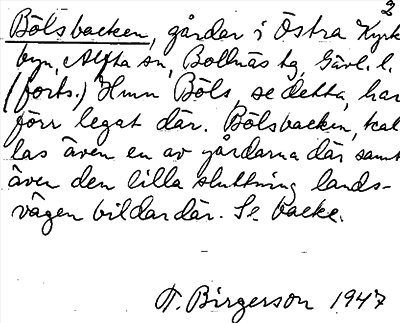 2
Bölsbacken, gårdar i Östra Kyrk
byn, Alfta sn, Bollnäs tg, Gävl. l.
(forts.) Hmn Böls, se detta, har
förr legat där. Bölsbacken, kal
las även en av gårdarna där samt
även den lilla sluttning lands-
vägen bildar där. Se backe.
T. Birgerson 1947